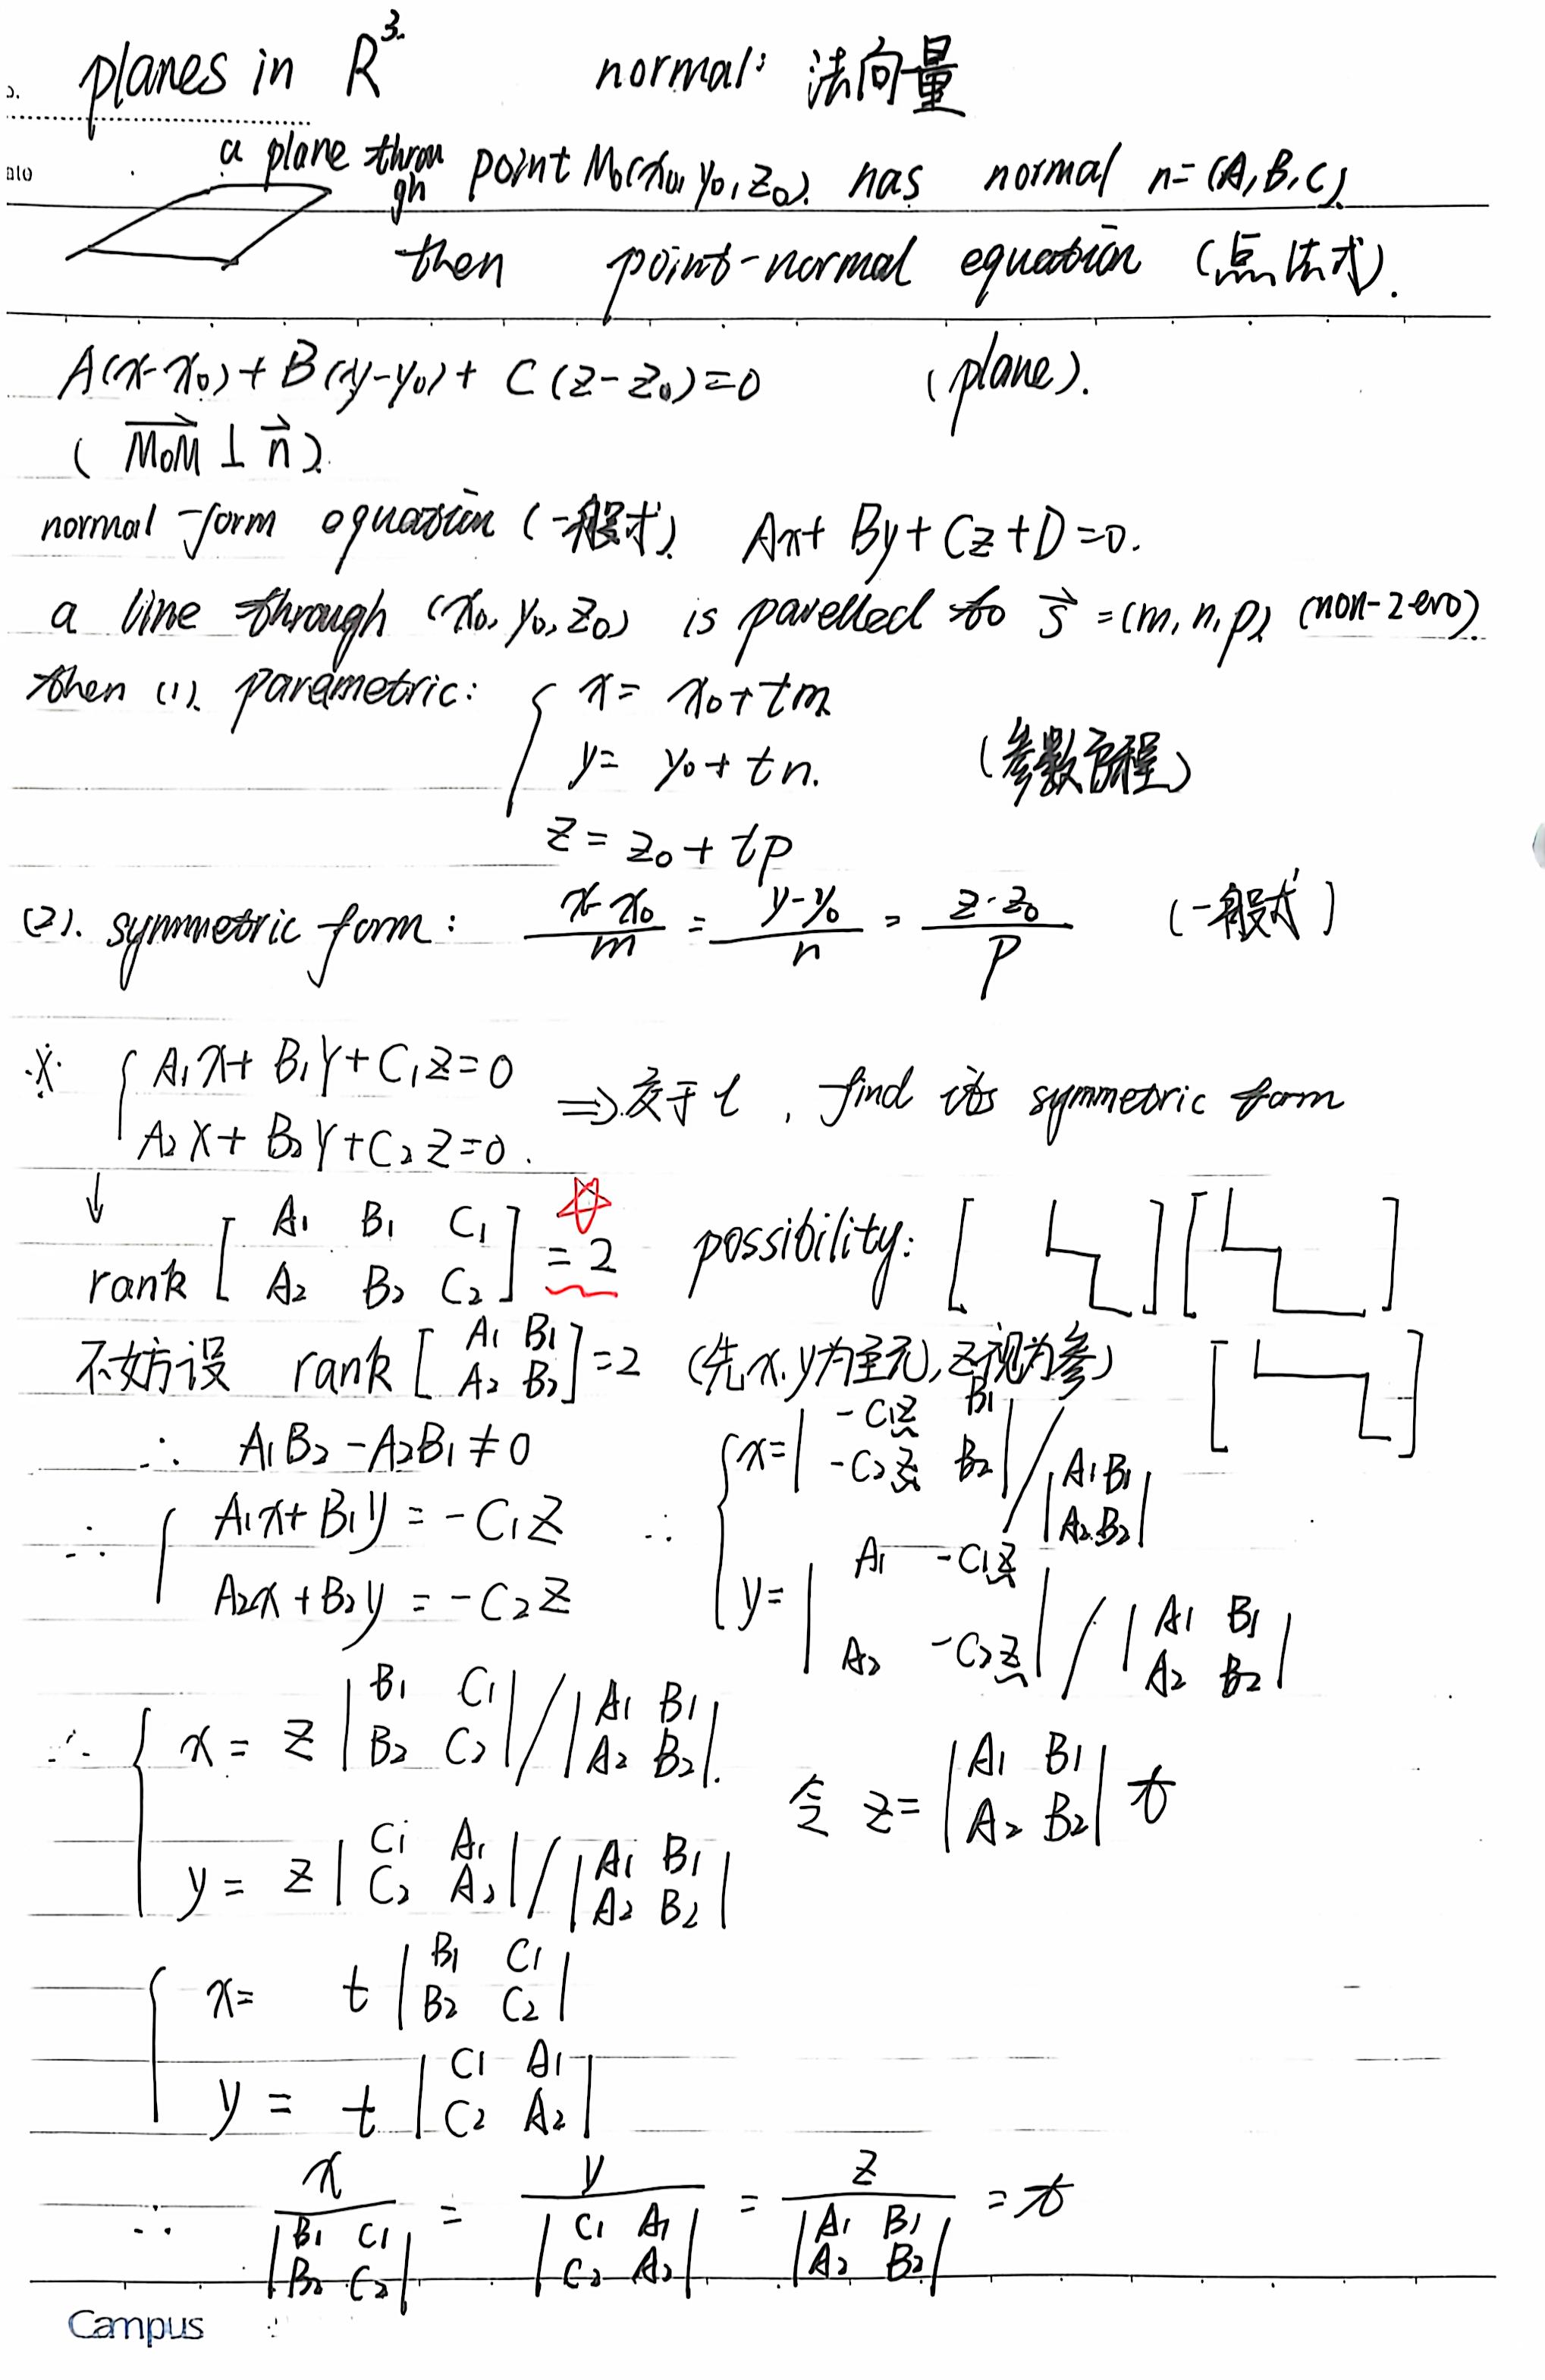 planes in R³. normal: 法向量
a plane through point M₀(x₀, y₀, z₀). has normal n=(A, B, C).
then point-normal equation (点法式).
A(x-x₀)+B(y-y₀)+C(z-z₀)=0 (plane).
(M₀M⃗ ⊥ n⃗).
normal-form equation (一般式). Ax+By+Cz+D=0.
a line through (x₀, y₀, z₀) is parelled to s⃗=(m, n, p), (non-zero).
then (1). parametric: { x= x₀+tm
y= y₀+tn. (参数方程)
z= z₀+tp
(2). symmetric form: (x-x₀)/m = (y-y₀)/n = (z-z₀)/p (一般式)
※ { A₁x+B₁y+C₁z=0
A₂x+B₂y+C₂z=0. ⇒交于l, find its symmetric form
↓
rank [A₁ B₁ C₁; A₂ B₂ C₂] =2 possibility: [ ] [ ]
不妨设 rank [A₁ B₁; A₂ B₂]=2 (先x,y为主元),z视为参) [ ]
∴ A₁B₂-A₂B₁≠0
∴ { A₁x+B₁y=-C₁z
A₂x+B₂y=-C₂z
∴ { x=|-C₁z B₁; -C₂z B₂| / |A₁ B₁; A₂ B₂|
y=|A₁ -C₁z; A₂ -C₂z| / |A₁ B₁; A₂ B₂|
∴ { x= z |B₁ C₁; B₂ C₂| / |A₁ B₁; A₂ B₂|.
y= z |C₁ A₁; C₂ A₂| / |A₁ B₁; A₂ B₂|
令 z= |A₁ B₁; A₂ B₂| t
{ x= t |B₁ C₁; B₂ C₂|
y= t |C₁ A₁; C₂ A₂|
∴ x/|B₁ C₁; B₂ C₂| = y/|C₁ A₁; C₂ A₂| = z/|A₁ B₁; A₂ B₂| = t
Campus